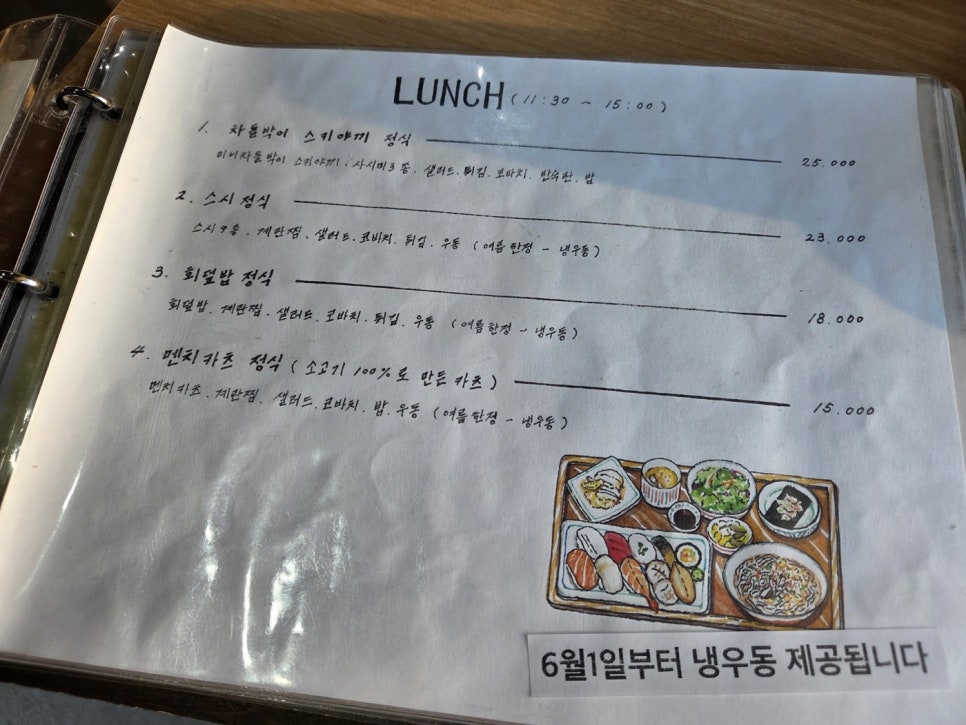 LUNCH (11:30 ~ 15:00)
1. 차돌박이 스키야끼 정식 25.000
미니차돌박이 스키야끼. 사시미3종. 샐러드. 튀김. 코바치. 반숙란. 밥
2. 스시 정식 23.000
스시9종. 계란찜. 샐러드. 코바치. 튀김. 우동 (여름한정 - 냉우동)
3. 회덮밥 정식 18.000
회덮밥. 계란찜. 샐러드. 코바치. 튀김. 우동 (여름한정 - 냉우동)
4. 멘치카츠 정식 (소고기 100%로 만든 카츠) 15.000
멘치카츠. 계란찜. 샐러드. 코바치. 밥. 우동 (여름한정 - 냉우동)
6월1일부터 냉우동 제공됩니다